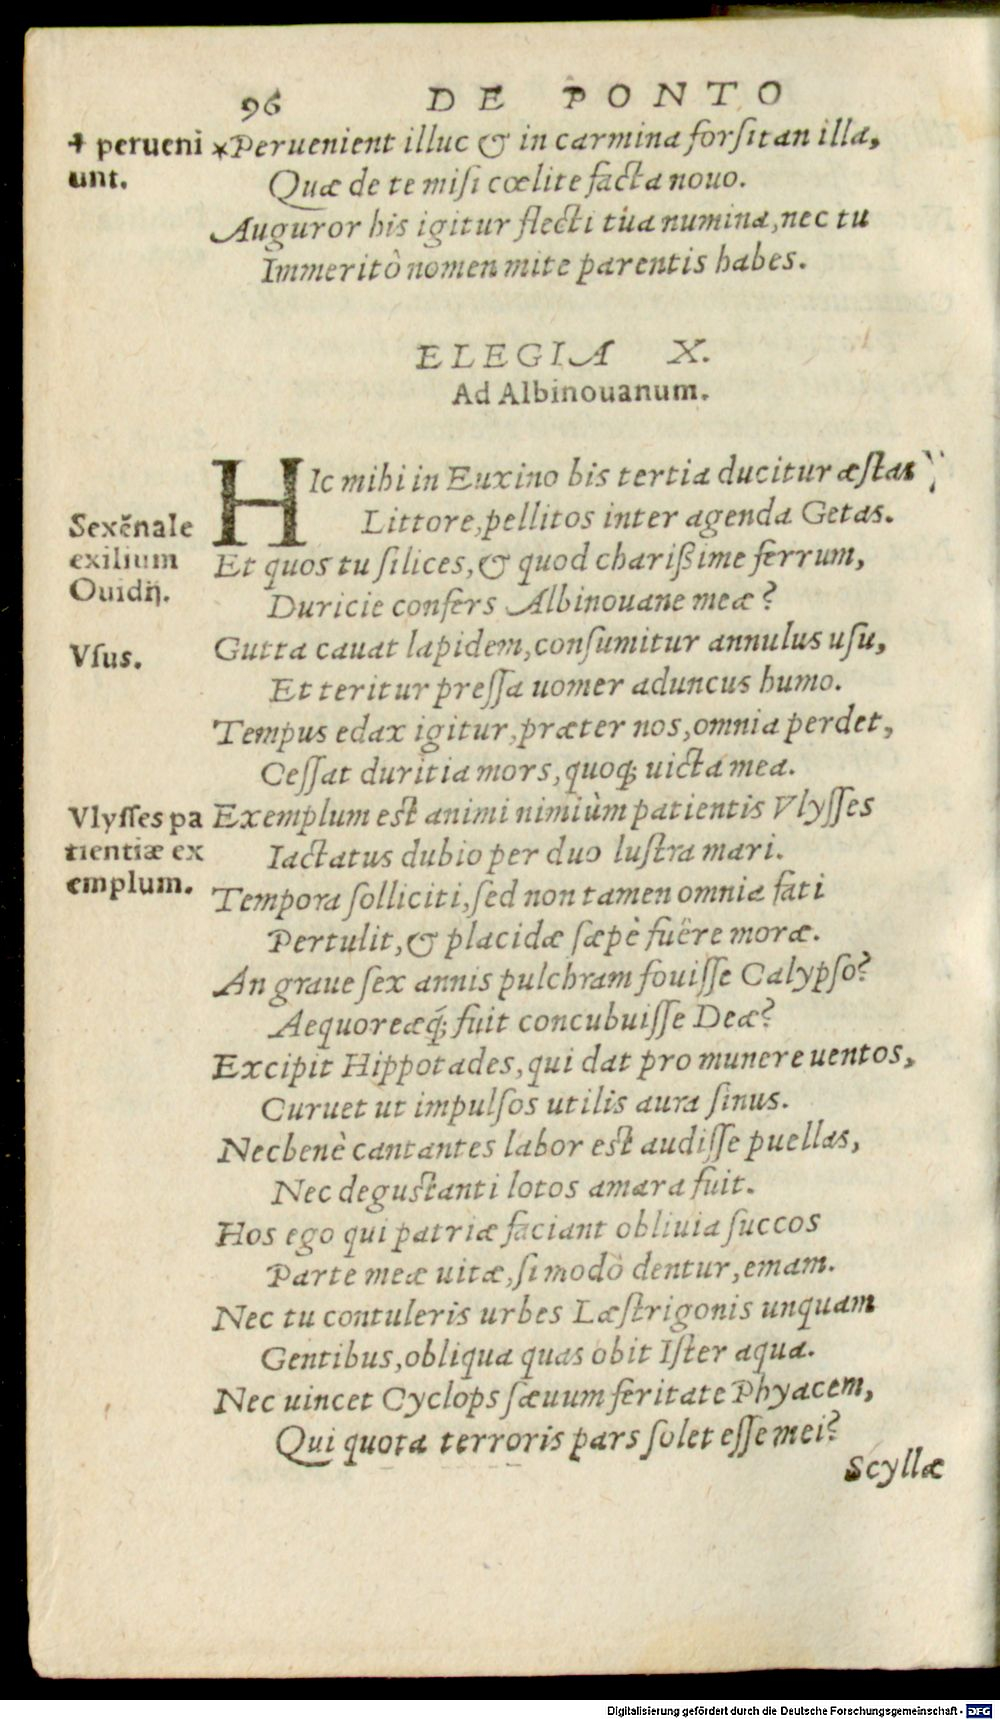 96 DE PONTO
+ perueni
unt.
*Peruenient illuc & in carmina forsitan illa,
Quæ de te misi cœlite facta nouo.
Auguror his igitur flecti tua numina, nec tu
Immeritò nomen mite parentis habes.
ELEGIA X.
Ad Albinouanum.
HIc mihi in Euxino bis tertia ducitur æstas
Littore, pellitos inter agenda Getas.
Sexēnale
exilium
Ouidij.
Et quos tu silices, & quod charißime ferrum,
Duricie confers Albinouane meæ?
Vsus.
Gutta cauat lapidem, consumitur annulus usu,
Et teritur pressa uomer aduncus humo.
Tempus edax igitur, præter nos, omnia perdet,
Cessat duritia mors, quoq; uicta mea.
Vlysses pa
tientiæ ex
emplum.
Exemplum est animi nimiùm patientis Vlysses
Iactatus dubio per duo lustra mari.
Tempora solliciti, sed non tamen omnia fati
Pertulit, & placidæ sæpè fuêre moræ.
An graue sex annis pulchram fouisse Calypso?
Aequoreæq́; fuit concubuisse Deæ?
Excipit Hippotades, qui dat pro munere uentos,
Curuet ut impulsos utilis aura sinus.
Nec benè cantantes labor est audisse puellas,
Nec degustanti lotos amara fuit.
Hos ego qui patriæ faciant obliuia succos
Parte meæ uitæ, si modò dentur, emam.
Nec tu contuleris urbes Læstrigonis unquam
Gentibus, obliqua quas obit Ister aqua.
Nec uincet Cyclops sæuum feritate Phyacem,
Qui quota terroris pars solet esse mei?
Scyllæ
Digitalisierung gefördert durch die Deutsche Forschungsgemeinschaft - DFG